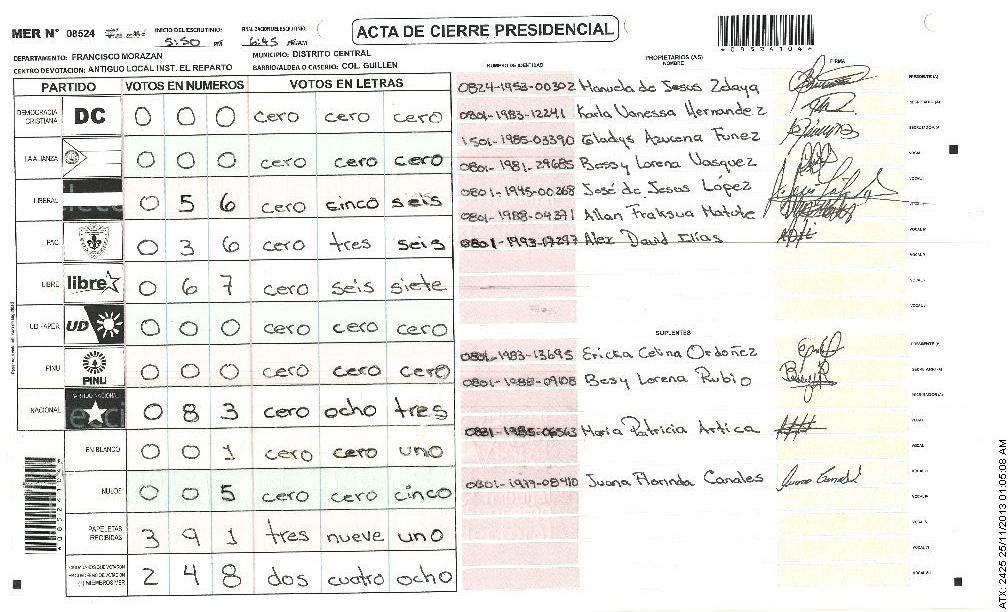 MER N° 08524
INICIO DEL ESCRUTINIO: 5:50
FINALIZACION DEL ESCRUTINIO: 6:45
ACTA DE CIERRE PRESIDENCIAL
DEPARTAMENTO: FRANCISCO MORAZAN
MUNICIPIO: DISTRITO CENTRAL
CENTRO DE VOTACION: ANTIGUO LOCAL INST. EL REPARTO
BARRIO/ALDEA O CASERIO: COL. GUILLEN
PARTIDO VOTOS EN NUMEROS VOTOS EN LETRAS
DEMOCRACIA CRISTIANA DC 0 0 0 cero cero cero
LA ALIANZA 0 0 0 cero cero cero
LIBERAL 0 5 6 cero cinco seis
PAC 0 3 6 cero tres seis
LIBRE libre 0 6 7 cero seis siete
UD FAPER UD 0 0 0 cero cero cero
PINU PINU 0 0 0 cero cero cero
NACIONAL 0 8 3 cero ocho tres
EN BLANCO 0 0 1 cero cero uno
NULOS 0 0 5 cero cero cinco
PAPELETAS RECIBIDAS 3 9 1 tres nueve uno
2 4 8 dos cuatro ocho
NUMERO DE IDENTIDAD PROPIETARIOS (AS) NOMBRE FIRMA
0824-1953-00302 Manuela de Jesus Zelaya PRESIDENTE(A)
0801-1983-12241 Karla Vanessa Hernandez SECRETARIO (A)
1501-1985-03390 Gladys Azucena Funez
0801-1981-29685 Bessy Lorena Vasquez VOCAL
0801-1945-00268 José de Jesus López
0801-1988-04371 Allan
0801-1993-17297 Alex David Elías
SUPLENTES
0801-1983-13695 Ericka Celina Ordoñez
0801-1988-09108 Besy Lorena Rubio
0801-1985-06563 Maria Patricia Artica
0801-1979-08410 Juana Florinda Canales
ATX: 2425 25/11/2013 01:05:08 AM